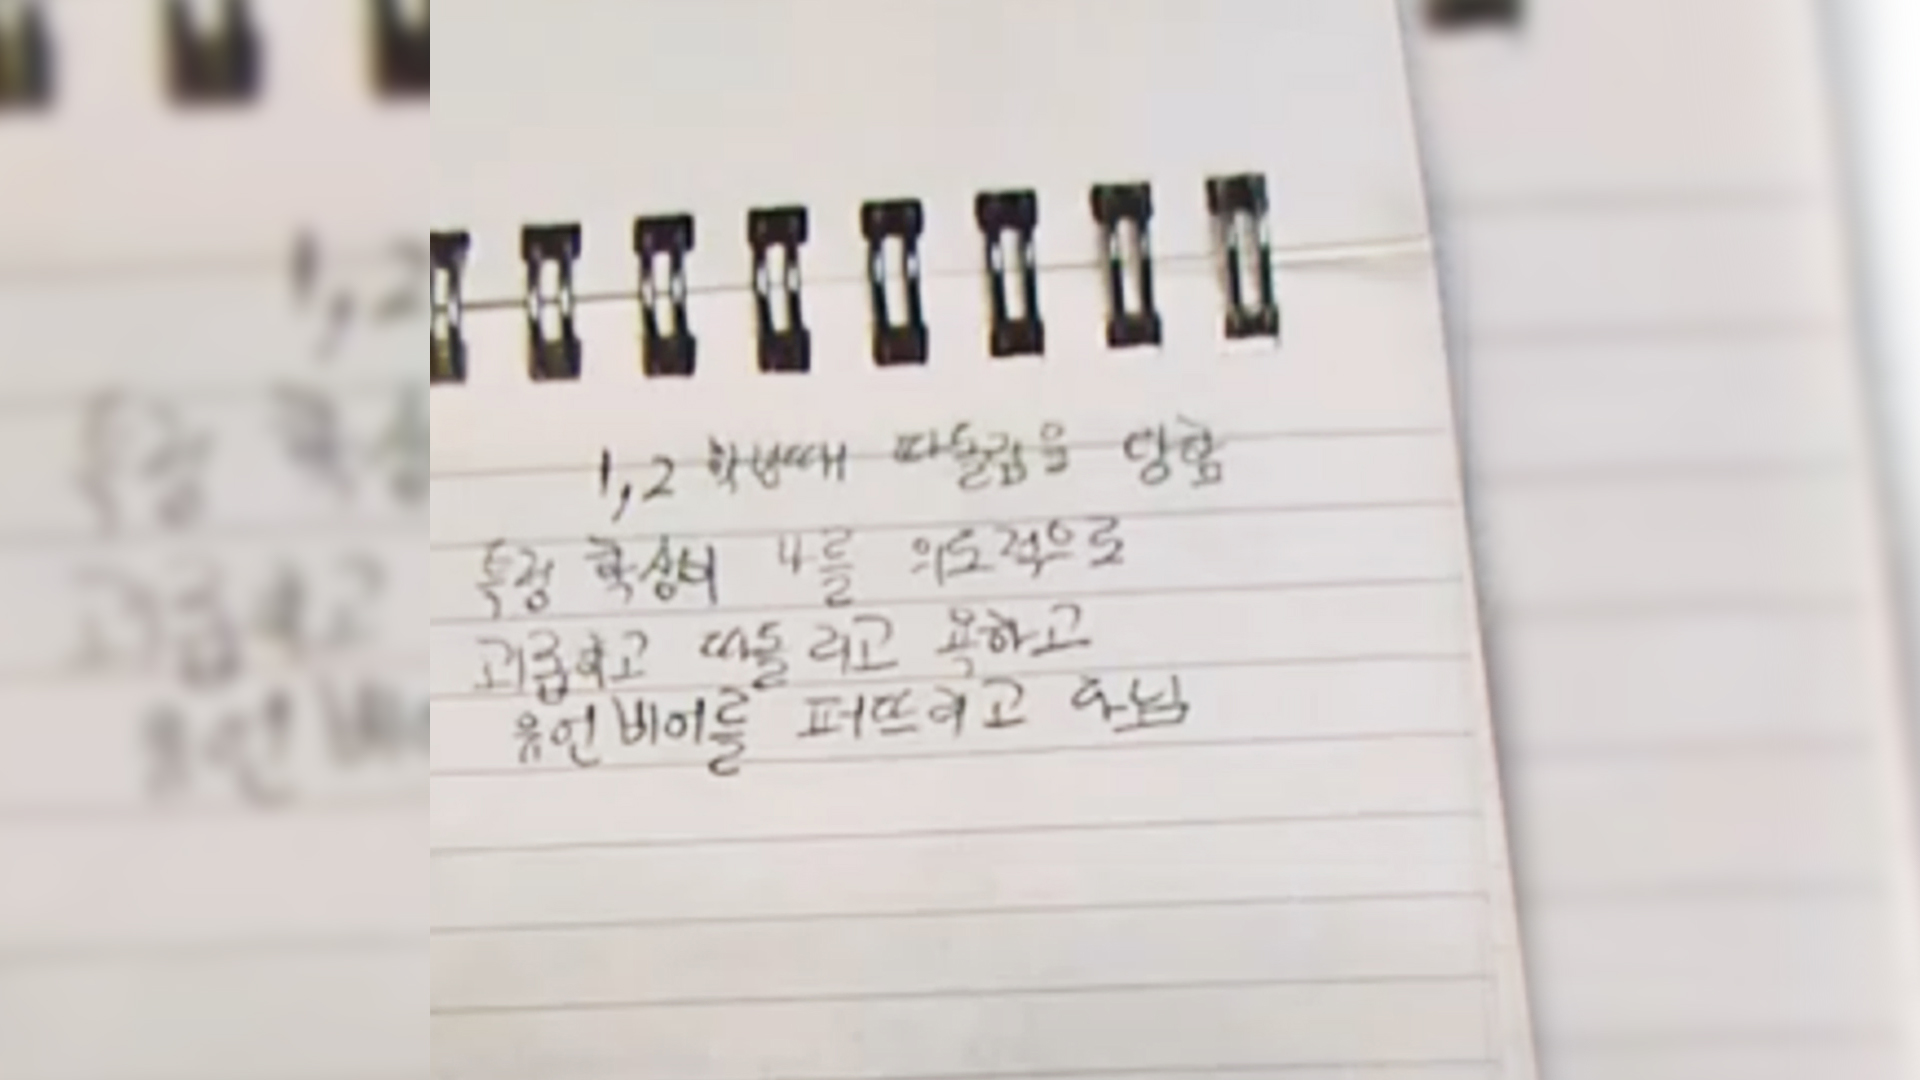 1,2 학년때 따돌림을 당함
특정 학생이 나를 의도적으로
괴롭히고 따돌리고 욕하고
유언비어를 퍼뜨리고 다님